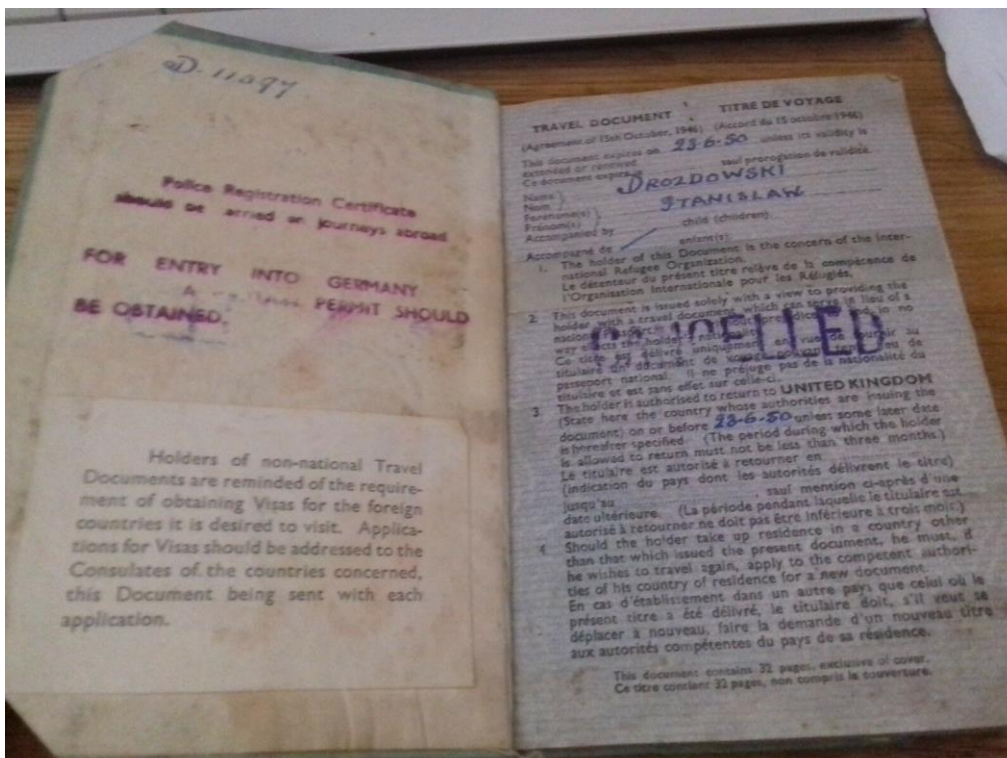 D.11097
Police Registration Certificate
should be arried on journeys abroad
FOR ENTRY INTO GERMANY
A PERMIT SHOULD
BE OBTAINED.
Holders of non-national Travel
Documents are reminded of the require-
ment of obtaining Visas for the foreign
countries it is desired to visit. Applica-
tions for Visas should be addressed to the
Consulates of the countries concerned,
this Document being sent with each
application.
TRAVEL DOCUMENT TITRE DE VOYAGE
(Agreement of 15th October, 1946) (Accord du 15 octobre 1946)
This document expires on 23-6-50 unless its validity is
extended or renewed.
Ce document expire sauf prorogation de validité.
Name } DROZDOWSKI
Nom
Forename(s) } STANISLAW
Prénom(s)
Accompanied by child (children).
Accompagné de enfant(s).
1. The holder of this Document is the concern of the Inter-
national Refugee Organization.
Le détenteur du présent titre relève de la compétence de
l'Organisation Internationale pour les Réfugiés.
2 This document is issued solely with a view to providing the
holder with a travel document which can serve in lieu of a
national in no
way affects the holder's nationality.
Ce titre est délivré uniquement en vue de fournir au
titulaire un document de voyage pouvant tenir lieu de
passeport national. Il ne préjuge pas de la nationalité du
titulaire et est sans effet sur celle-ci.
CANCELLED
3 The holder is authorised to return to UNITED KINGDOM
(State here the country whose authorities are issuing the
document) on or before 23-6-50 unless some later date
is hereafter specified. (The period during which the holder
is allowed to return must not be less than three months.)
Le titulaire est autorisé à retourner en
(indication du pays dont les autorités délivrent le titre)
jusqu'au , sauf mention ci-après d'une
date ultérieure. (La période pendant laquelle le titulaire est
autorisé à retourner ne doit pas être inférieure à trois mois.)
4 Should the holder take up residence in a country other
than that which issued the present document, he must, if
he wishes to travel again, apply to the competent authori-
ties of his country of residence for a new document.
En cas d'établissement dans un autre pays que celui où le
présent titre a été délivré, le titulaire doit, s'il veut se
déplacer à nouveau, faire la demande d'un nouveau titre
aux autorités compétentes du pays de sa résidence.
This document contains 32 pages, exclusive of cover.
Ce titre contient 32 pages, non compris la couverture.